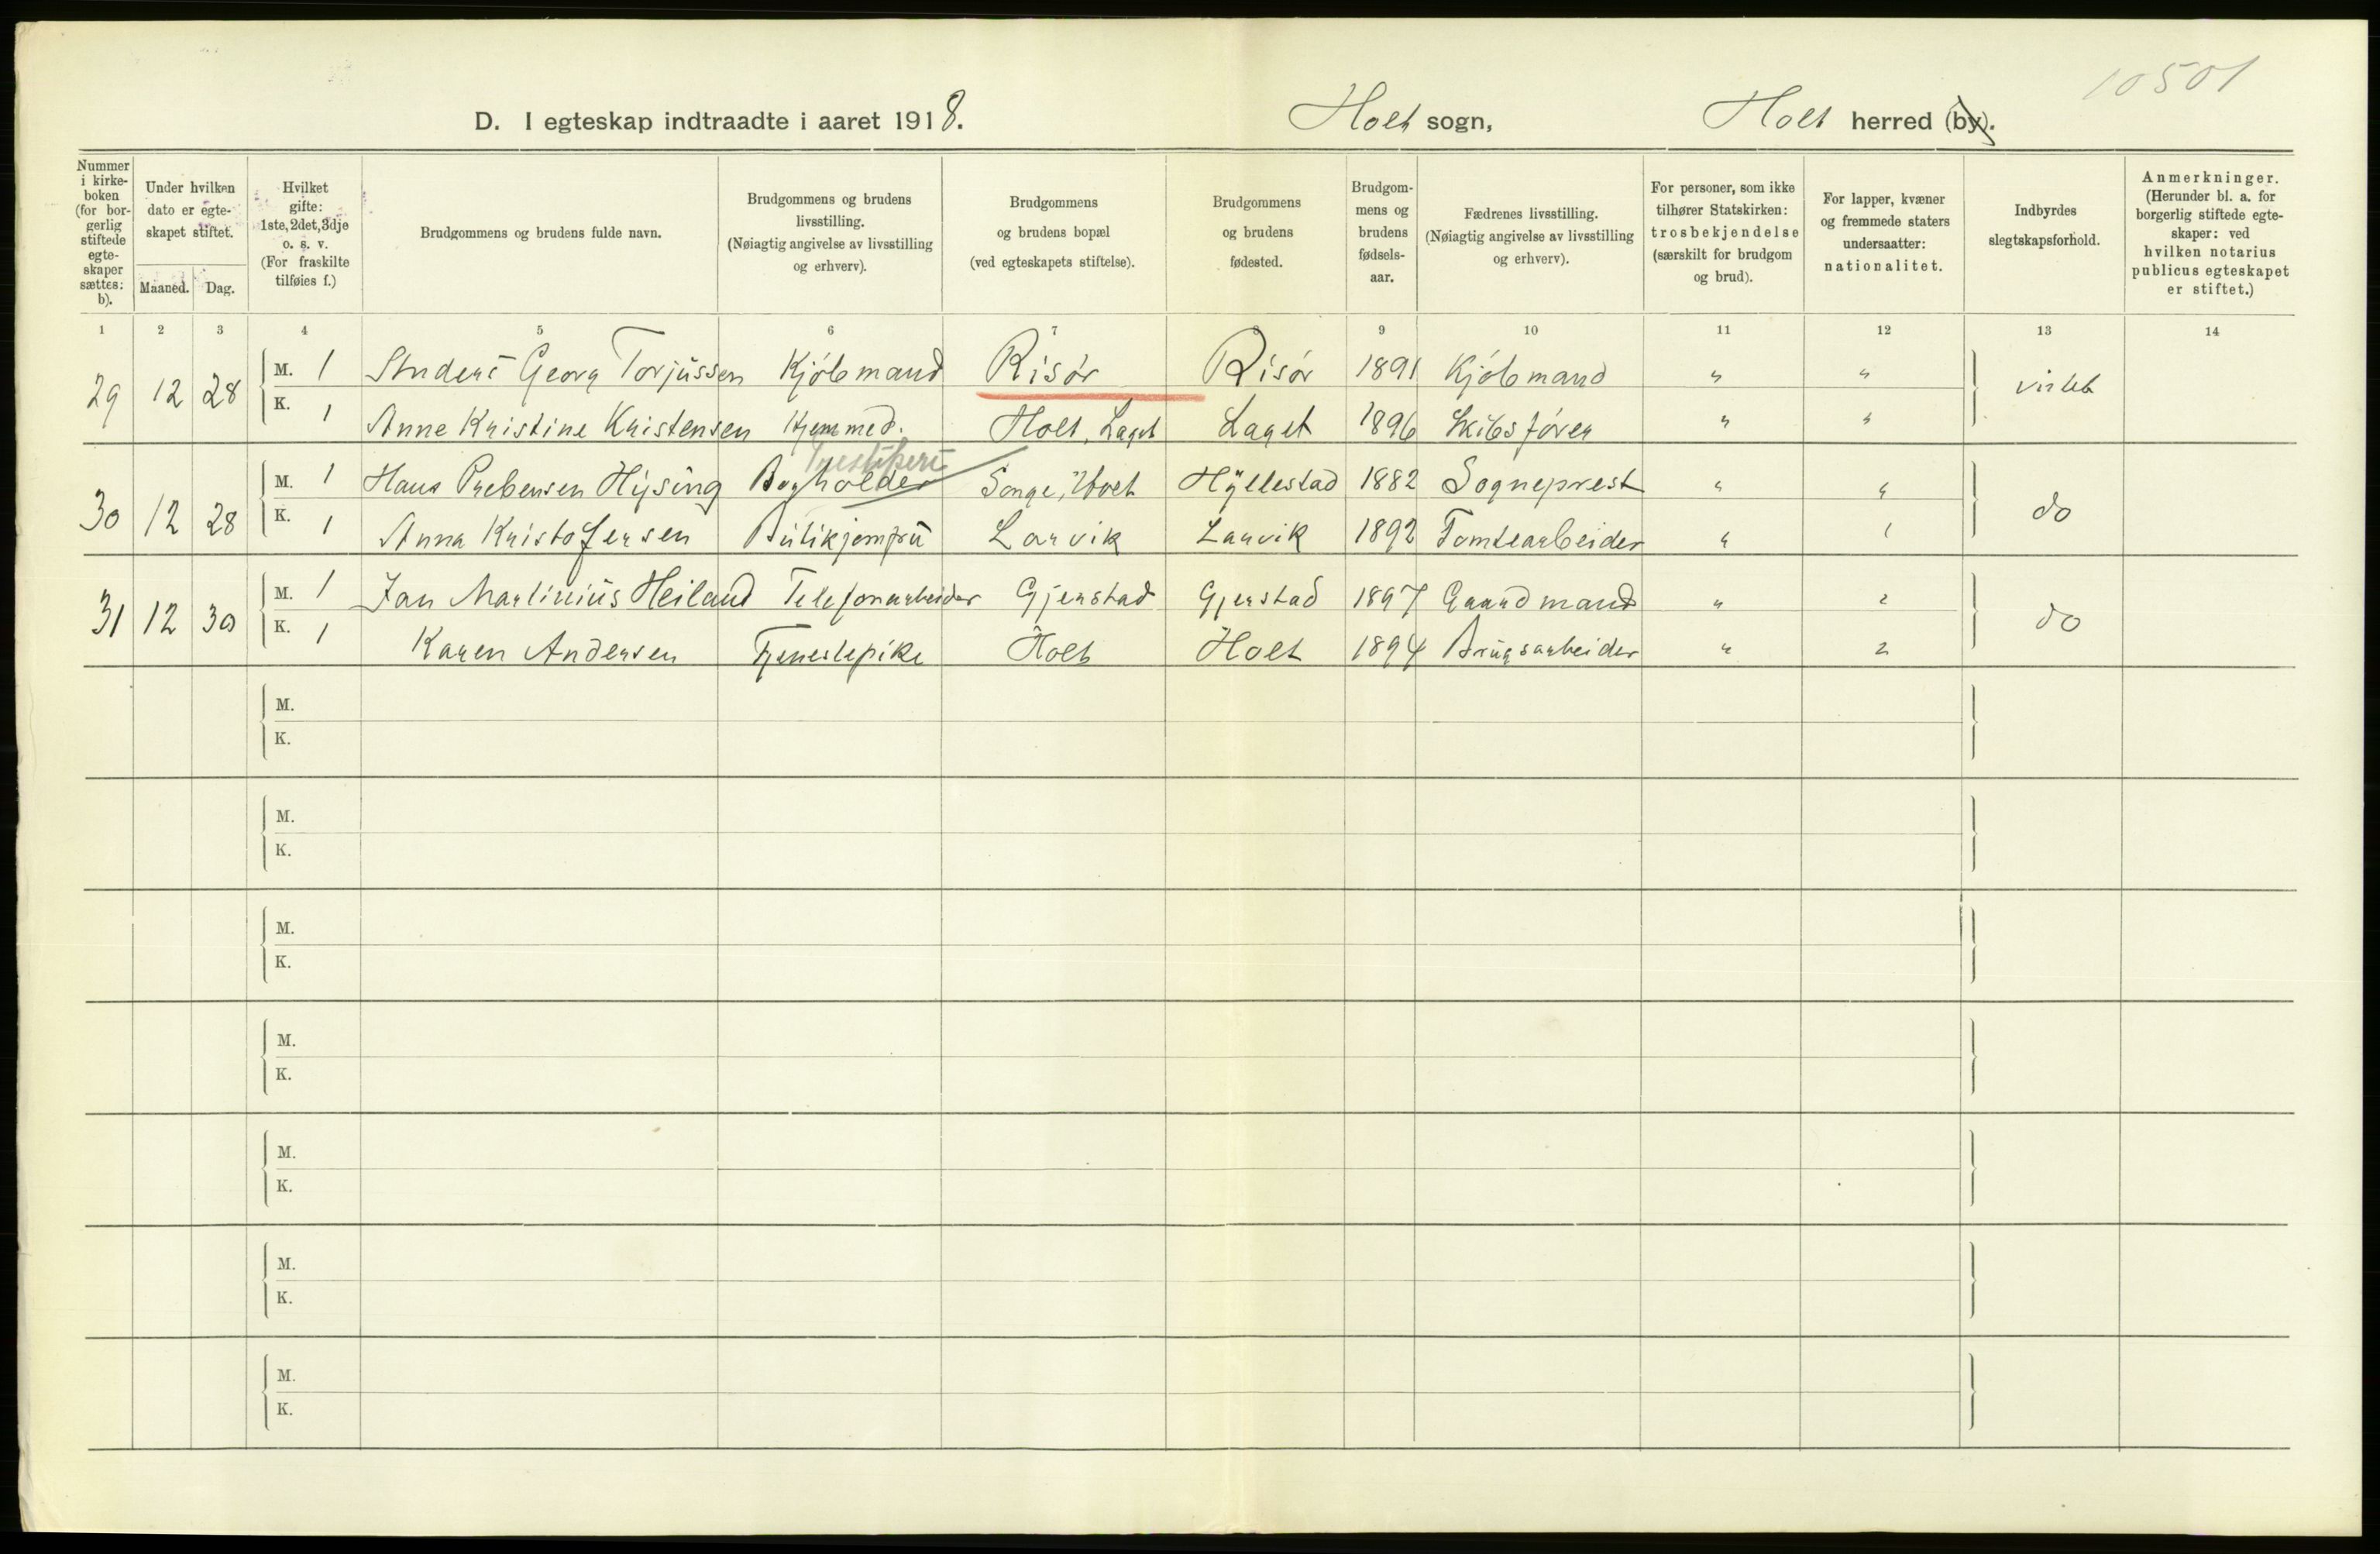 10501
D. I egteskap indtraadte i aaret 1918. Holt sogn, Holt herred (by).
Nummer i kirkeboken (for borgerlig stiftede egteskaper sættes: b).
Under hvilken dato er egteskapet stiftet.
Maaned. Dag.
Hvilket gifte: 1ste, 2det, 3dje o. s. v. (For fraskilte tilføies f.)
Brudgommens og brudens fulde navn.
Brudgommens og brudens livsstilling. (Nøiagtig angivelse av livsstilling og erhverv).
Brudgommens og brudens bopæl (ved egteskapets stiftelse).
Brudgommens og brudens fødested.
Brudgommens og brudens fødselsaar.
Fædrenes livsstilling. (Nøiagtig angivelse av livsstilling og erhverv).
For personer, som ikke tilhører Statskirken: trosbekjendelse (særskilt for brudgom og brud).
For lapper, kvæner og fremmede staters undersaatter: nationalitet.
Indbyrdes slegtskapsforhold.
Anmerkninger. (Herunder bl. a. for borgerlig stiftede egteskaper: ved hvilken notarius publicus egteskapet er stiftet.)
1 2 3 4 5 6 7 8 9 10 11 12 13 14
29 12 28 M. 1 Anders Georg Torjussen Kjøbmand Risør Risør 1891 Kjøbmand " "
K. 1 Anne Kristine Kristensen Hjemmed. Holt, Laget Laget 1896 Skibsfører " "
30 12 28 M. 1 Hans Prebensen Hysing Bogholder Træsliperi Songe, Holt Hyllestad 1882 Sogneprest " " do
K. 1 Anna Kristofersen Butikjomfru Larvik Larvik 1892 Tomtearbeider "
31 12 30 M. 1 Jan Martinius Heiland Telefonarbeider Gjerstad Gjerstad 1897 Gaardmand " " do
K. 1 Karen Andersen Tjenestepike Holt Holt 1894 Brugsarbeider " "
M.
K.
M.
K.
M.
K.
M.
K.
M.
K.
M.
K.
M.
K.